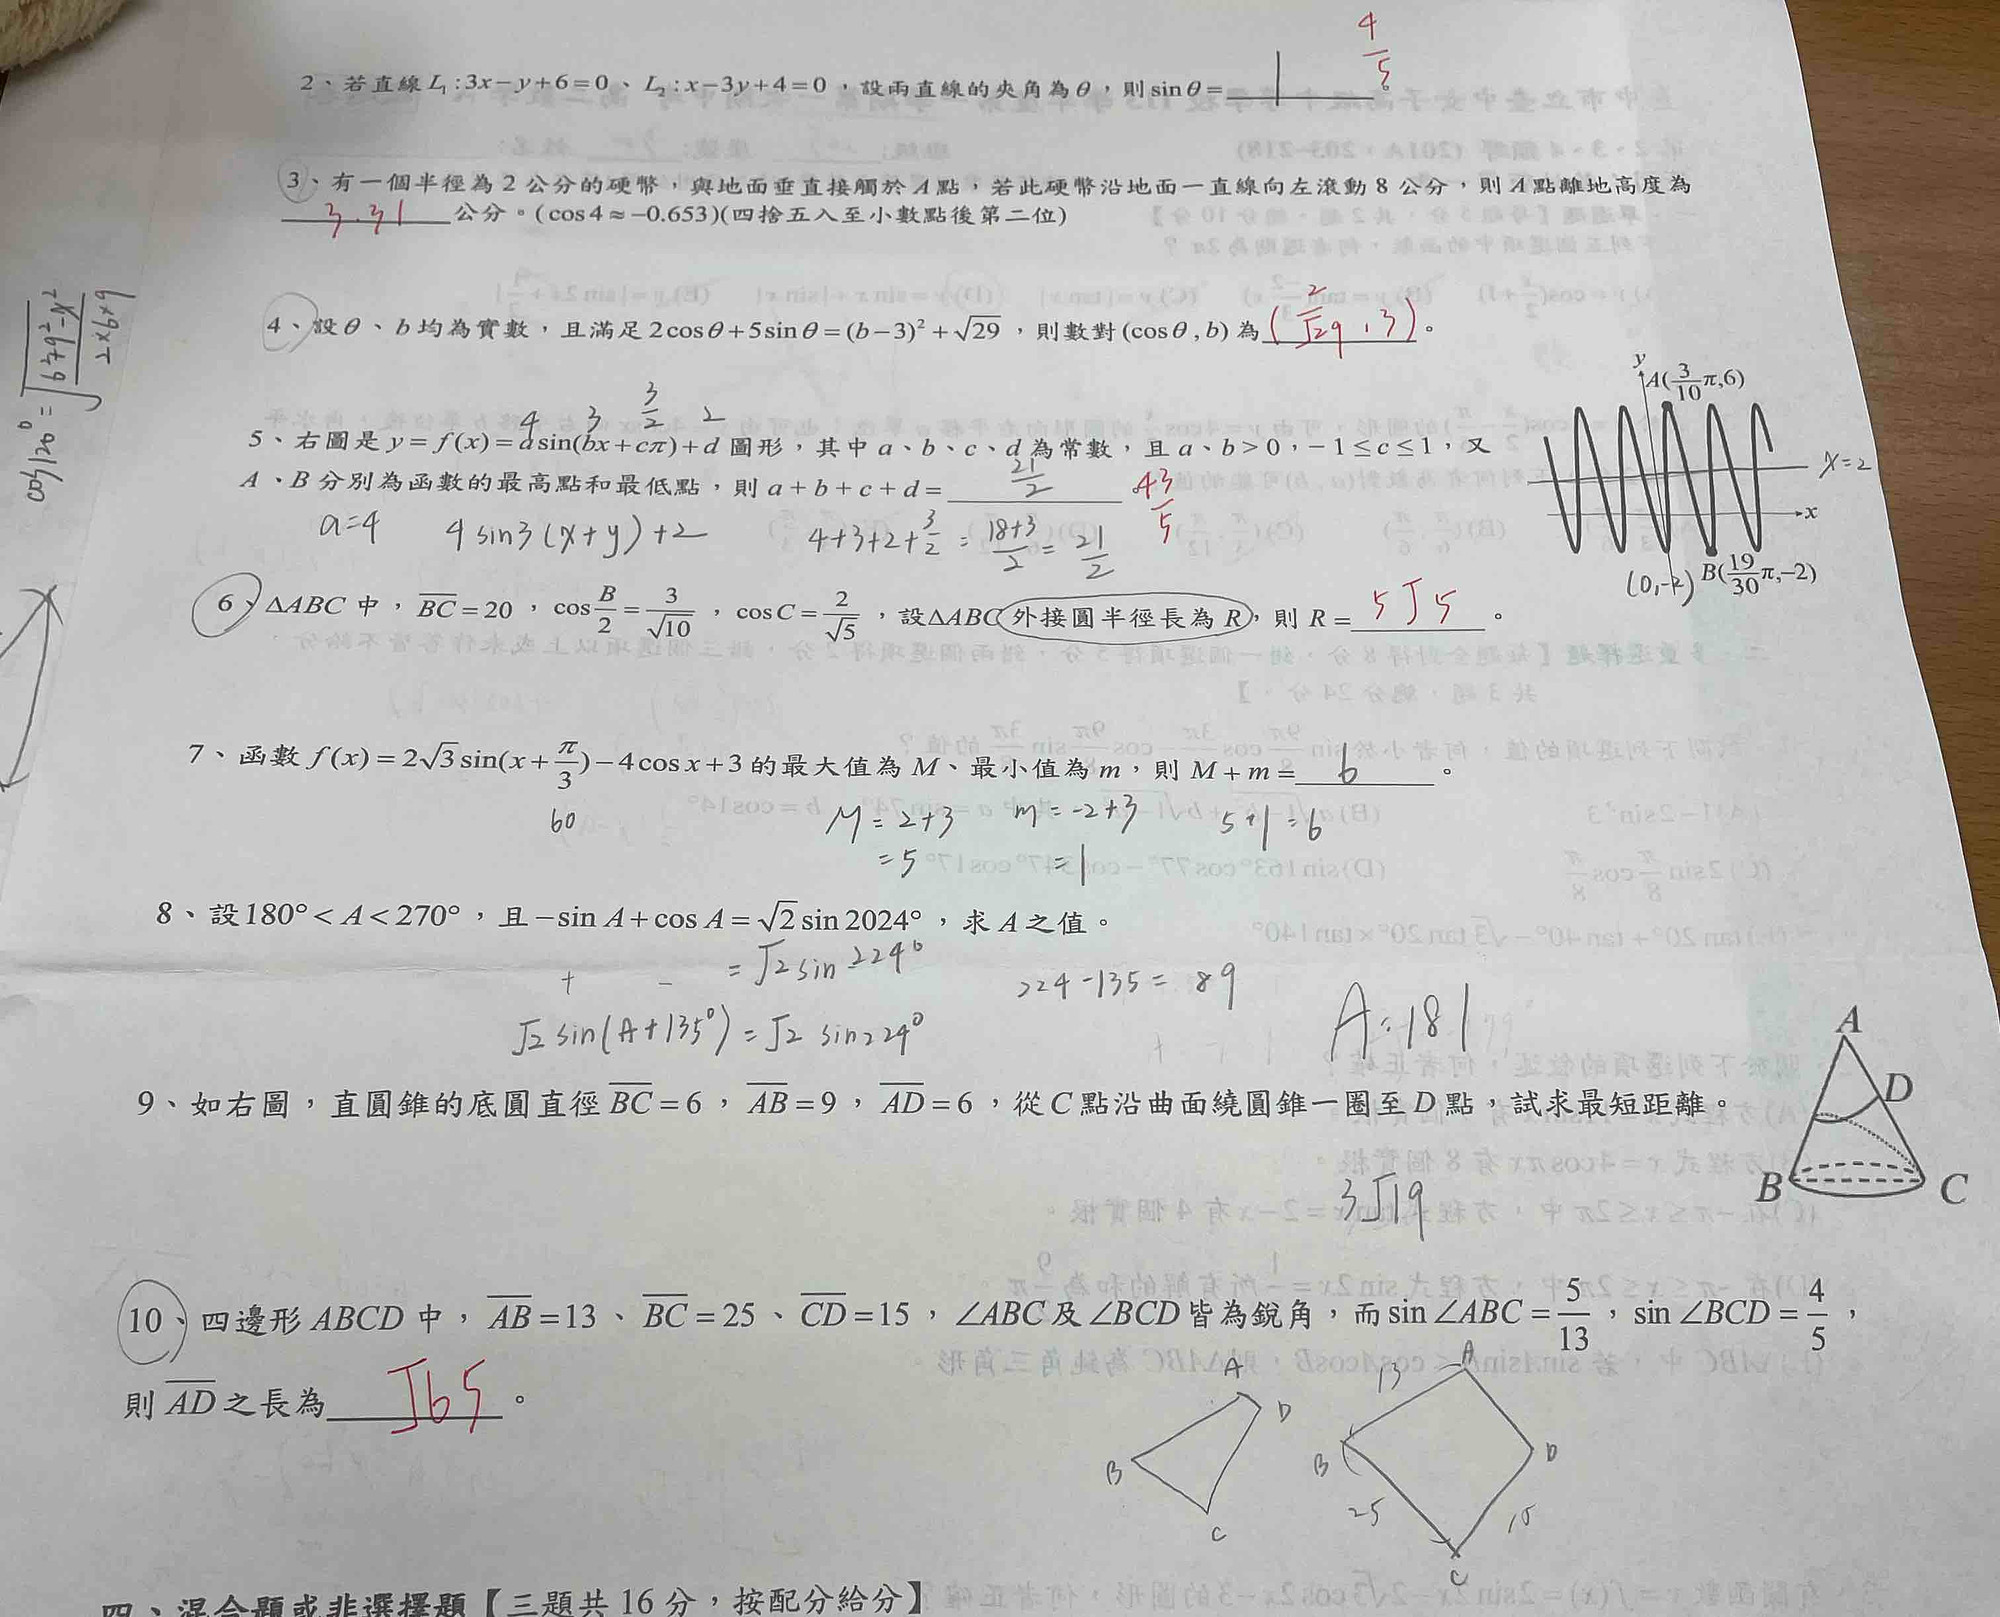 2、若直線 L₁:3x−y+6=0、L₂:x−3y+4=0，設兩直線的夾角為θ，則 sinθ= 1 4/5 。
3、有一個半徑為 2 公分的硬幣，與地面垂直接觸於 A 點，若此硬幣沿地面一直線向左滾動 8 公分，則 A 點離地高度為
3.31 公分。(cos4≈−0.653)(四捨五入至小數點後第二位)
cos120°=√(6²+9²−x²)/2×6×9
4、設θ、b均為實數，且滿足 2cosθ+5sinθ=(b−3)²+√29，則數對(cosθ,b)為 (2/√29 , 3) 。
4 3 3/2 2
5、右圖是 y=f(x)=asin(bx+cπ)+d 圖形，其中 a、b、c、d 為常數，且 a、b>0，−1≤c≤1，又
A、B 分別為函數的最高點和最低點，則 a+b+c+d= 21/2 。 43/5
a=4 4sin3(x+y)+2 4+3+2+3/2 = (18+3)/2 = 21/2
y
A(3/10 π,6)
x=2
x
(0,-2) B(19/30 π,−2)
6、ΔABC 中，BC=20，cos B/2=3/√10，cosC=2/√5，設ΔABC 外接圓半徑長為 R，則 R= 5√5 。
7、函數 f(x)=2√3sin(x+π/3)−4cosx+3 的最大值為 M、最小值為 m，則 M+m= 6 。
60 M=2+3 m=-2+3 5+1=6
=5 =1
8、設180°<A<270°，且−sinA+cosA=√2sin2024°，求 A 之值。
+ − =√2sin224° 224-135=89
√2sin(A+135°)=√2 sin224° A=181
9、如右圖，直圓錐的底圓直徑 BC=6，AB=9，AD=6，從 C 點沿曲面繞圓錐一圈至 D 點，試求最短距離。
3√19
A
D
B C
10、四邊形 ABCD 中，AB=13、BC=25、CD=15，∠ABC 及∠BCD 皆為銳角，而 sin∠ABC=5/13，sin∠BCD=4/5，
則 AD 之長為 √65 。
A D B C
13 A B D 25 15 C
四、混合題或非選擇題【三題共 16 分，按配分給分】